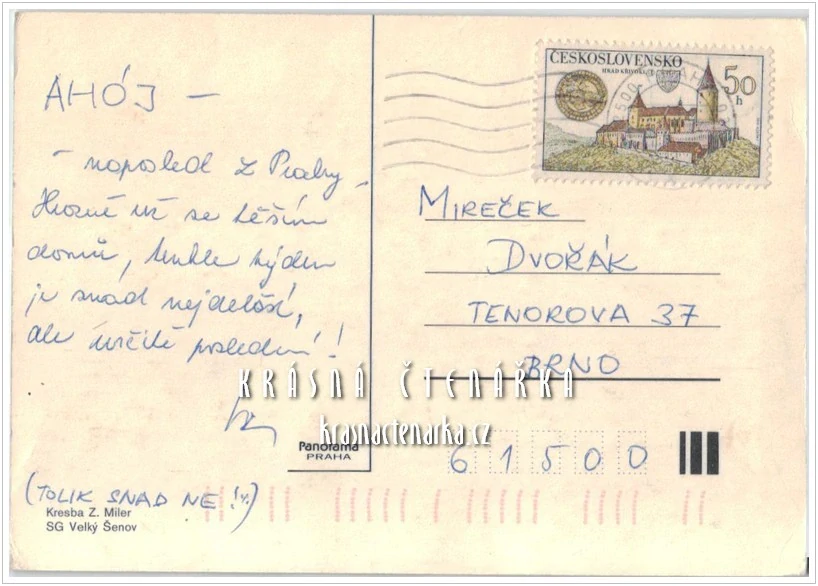 AHÓJ –
– naposled z Prahy.
Hrozně už se těším
domů, tenhle týden
je snad nejdelší,
ale určitě poslední!
(TOLIK SNAD NE!)
Kresba Z. Miler
SG Velký Šenov
Panorama
PRAHA
ČESKOSLOVENSKO
HRAD KŘIVOKLÁT
50
h
MIREČEK
DVOŘÁK
TENOROVA 37
BRNO
61500
KRÁSNÁ ČTENÁŘKA
krasnactenarka.cz